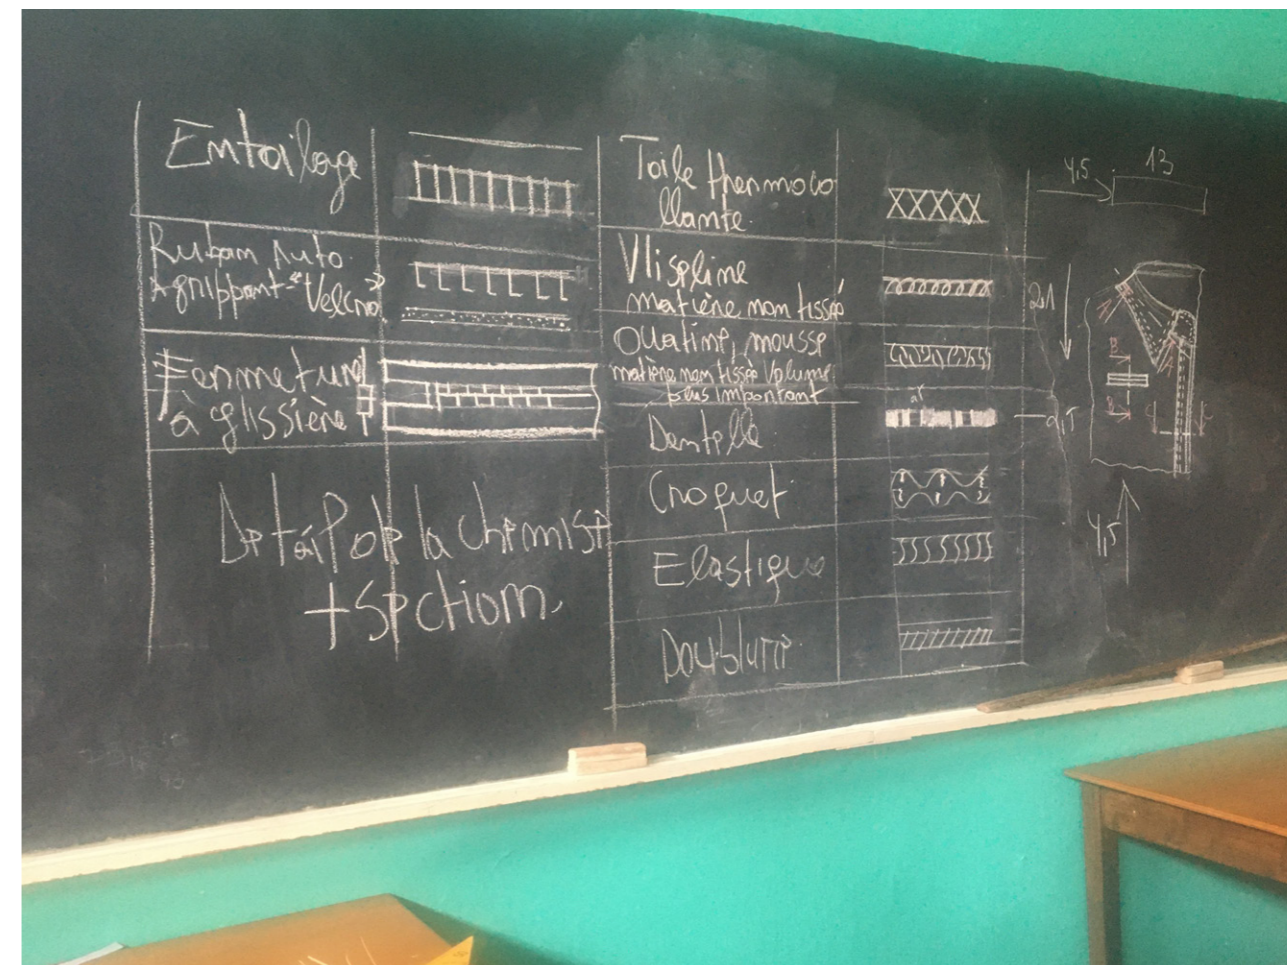 Entoilage
Ruban Auto
Agrippant "Velcro"
Fermeture
à glissière
Détail de la chemise
+ section.
Toile thermoco
llante.
Vlispline
matière non tissée
Ouatine, mousse
matière non tissée Volume
plus important
Dentelle
Croquet
Elastique
Doublure
4,5
13
4,5